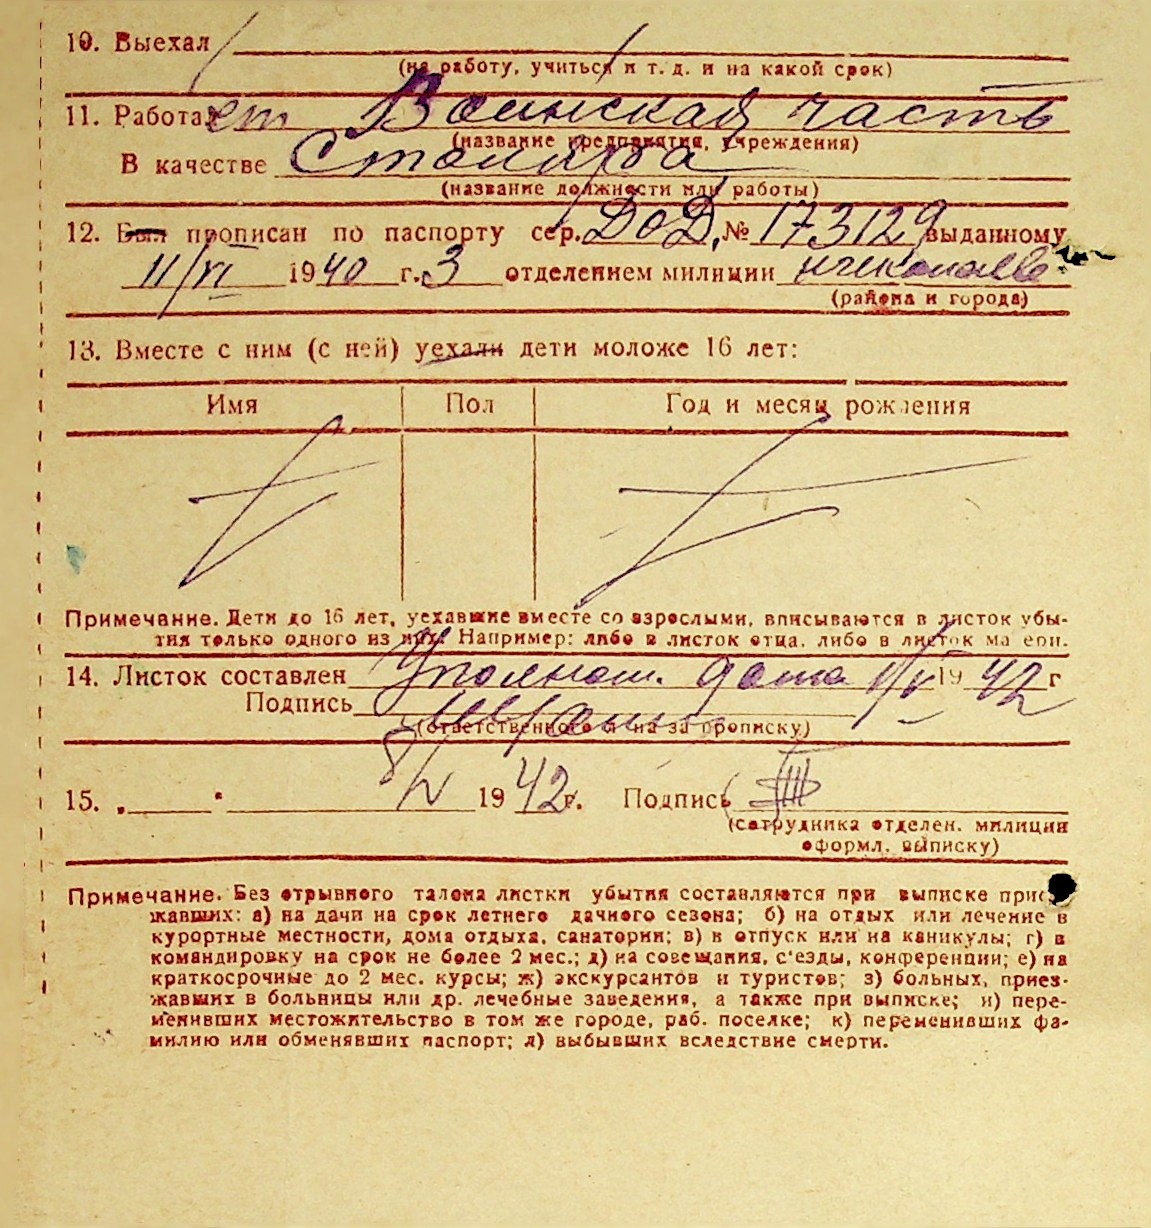 10. Выехал
(на работу, учиться и т. д. и на какой срок)
11. Работает Воинская часть
(название предприятия, учреждения)
В качестве Столяра
(название должности или работы)
12. Был прописан по паспорту сер. ДОД, № 173129 выданному
11/VI 1940 г. 3 отделением милиции Николаева
(района и города)
13. Вместе с ним (с ней) уехали дети моложе 16 лет:
Имя Пол Год и месяц рождения
Примечание. Дети до 16 лет, уехавшие вместе со взрослыми, вписываются в листок убы-
тия только одного из них. Например: либо в листок отца, либо в листок ма ери.
14. Листок составлен Уполном. дома 1942 г
Подпись
(ответственного за прописку)
15. „ " 8/V 1942 г. Подпись
(сотрудника отделен. милиции
оформл. выписку)
Примечание. Без отрывного талона листки убытия составляются при выписке прие
жавших: а) на дачи на срок летнего дачного сезона; б) на отдых или лечение в
курортные местности, дома отдыха, санатории; в) в отпуск или на каникулы; г) в
командировку на срок не более 2 мес.; д) на совещания, с'езды, конференции; е) на
краткосрочные до 2 мес. курсы; ж) экскурсантов и туристов; з) больных, приез-
жавших в больницы или др. лечебные заведения, а также при выписке; и) пере-
менивших местожительство в том же городе, раб. поселке; к) переменивших фа-
милию или обменявших паспорт; л) выбывших вследствие смерти.